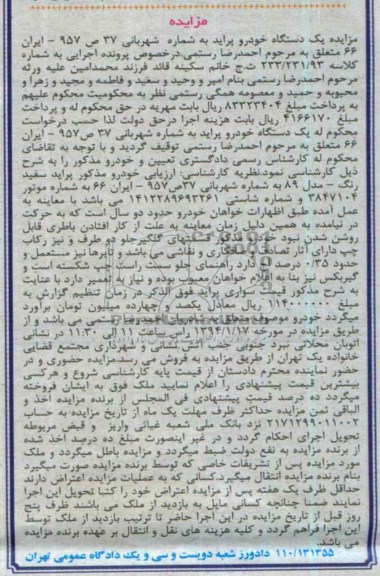 مزایده
مزایده یک دستگاه خودرو پراید به شماره شهربانی ۳۷ ص ۹۵۷ - ایران
۶۶ متعلق به مرحوم احمدرضا رستمی.درخصوص پرونده اجرایی به شماره
کلاسه ۲۳۳/۲۳۱/۹۳ ش.ج خانم سکینه قائد فرزند محمدامین علیه ورثه
مرحوم احمدرضا رستمی بنام امیر و وحید و سعید و فاطمه و مجید و زهرا و
محبوبه و حمید و معصومه همگی رستمی نظر به محکومیت محکوم علیهم
به پرداخت مبلغ ۸۳۳۲۳۴۰۴ ریال بابت مهریه در حق محکوم له و پرداخت
مبلغ ۴۱۶۶۱۷۰ ریال بابت هزینه اجرا درحق دولت لذا حسب درخواست
محکوم له یک دستگاه خودرو پراید به شماره شهربانی ۳۷ ص۹۵۷ - ایران
۶۶ متعلق به مرحوم احمدرضا رستمی توقیف گردید و با توجه به تقاضای
محکوم له کارشناس رسمی دادگستری تعیین و خودرو مذکور را به شرح
ذیل کارشناسی نمود.نظریه کارشناسی: ارزیابی خودرو مذکور پراید سفید
رنگ - مدل ۸۹ به شماره شهربانی ۳۷ص۹۵۷ - ایران ۶۶ به شماره موتور
۳۸۴۷۱۰۴ و شماره شاسی ۱۴۱۲۲۸۹۶۹۳۲۶۱ می باشد با معاینه به
عمل آمده طبق اظهارات خواهان خودرو حدود دو سال است که به حرکت
در نیامده به همین دلیل زمان معاینه به علت از کار افتادن باطری قابل
روشن شدن نبود خودرو مذکور قسمتهای گلگیرجلو دو طرف و نیز رکاب
چپ دارای آثار تصادف و صافکاری و نقاشی می باشد و تایرها نیز مستعمل و
حدود ۳۰٪ درصد آج دارد راهنمای جلو سمت راست چپ شکسته است و
گیربکس نیز بنا به اعلام خواهان معیوب بوده و نیاز به تعمیر دارد با عنایت
به شرح مذکور قیمت سواری پراید فوق الذکر در زمان تنظیم گزارش به
مبلغ ۱/۱۴۰۰۰۰۰۰۰ ریال معادل یکصد و چهارده میلیون تومان برآورد
میگردد خودرو موصوف متعلق به شادروان احمدرضا رستمی می باشد و از
طریق مزایده در مورخه ۱۳۹۴/۱/۱۷ از ساعت ۱۱ الی ۱۲ در نشانی
اتوبان محلاتی نبرد جنوبی جنب آتش نشانی و شهرداری مجتمع قضایی
خانواده یک تهران از طریق مزایده به فروش می رسد.مزایده حضوری و در
حضور نماینده محترم دادستان از قیمت پایه کارشناسی شروع و هرکسی
بیشترین قیمت پیشنهادی را اعلام نمایید ملک فوق به ایشان فروخته
میگردد ده درصد قیمت پیشنهادی فی المجلس از برنده مزایده اخذ و
الباقی ثمن مزایده حداکثر ظرف مهلت یک ماه از تاریخ مزایده به حساب
۲۱۷۱۲۹۹۰۱۱۰۰۲ نزد بانک ملی شعبه غیاثی واریز و قبض مربوطه
تحویل اجرای احکام گردد و در غیر اینصورت مبلغ ده درصد اخذ شده
از برنده مزایده به نفع دولت ضبط میگردد و مزایده باطل میگردد و ملک
مورد مزایده پس از تشریفات خاصی که توسط برنده مزایده صورت میگیرد
بنام برنده مزایده انتقال میگیرد.کسانی که به عملیات مزایده اعتراض دارند
حداقل ظرف یک هفته پس از مزایده اعتراض خود را کتبا تحویل این اجرا
نمایند ضمنا چنانچه کسانی مایل به بازدید از ملک می باشند ظرف پنج
روز قبل از تاریخ مزایده در این اجرا حاضر تا ترتیب بازدید از ملک توسط
این اجرا فراهم گردد و کلیه هزینه های نقل و انتقال بر عهده برنده مزایده
می باشد.
۱۱۰/۱۳۱۳۵۵ دادورز شعبه دویست و سی و یک دادگاه عمومی تهران